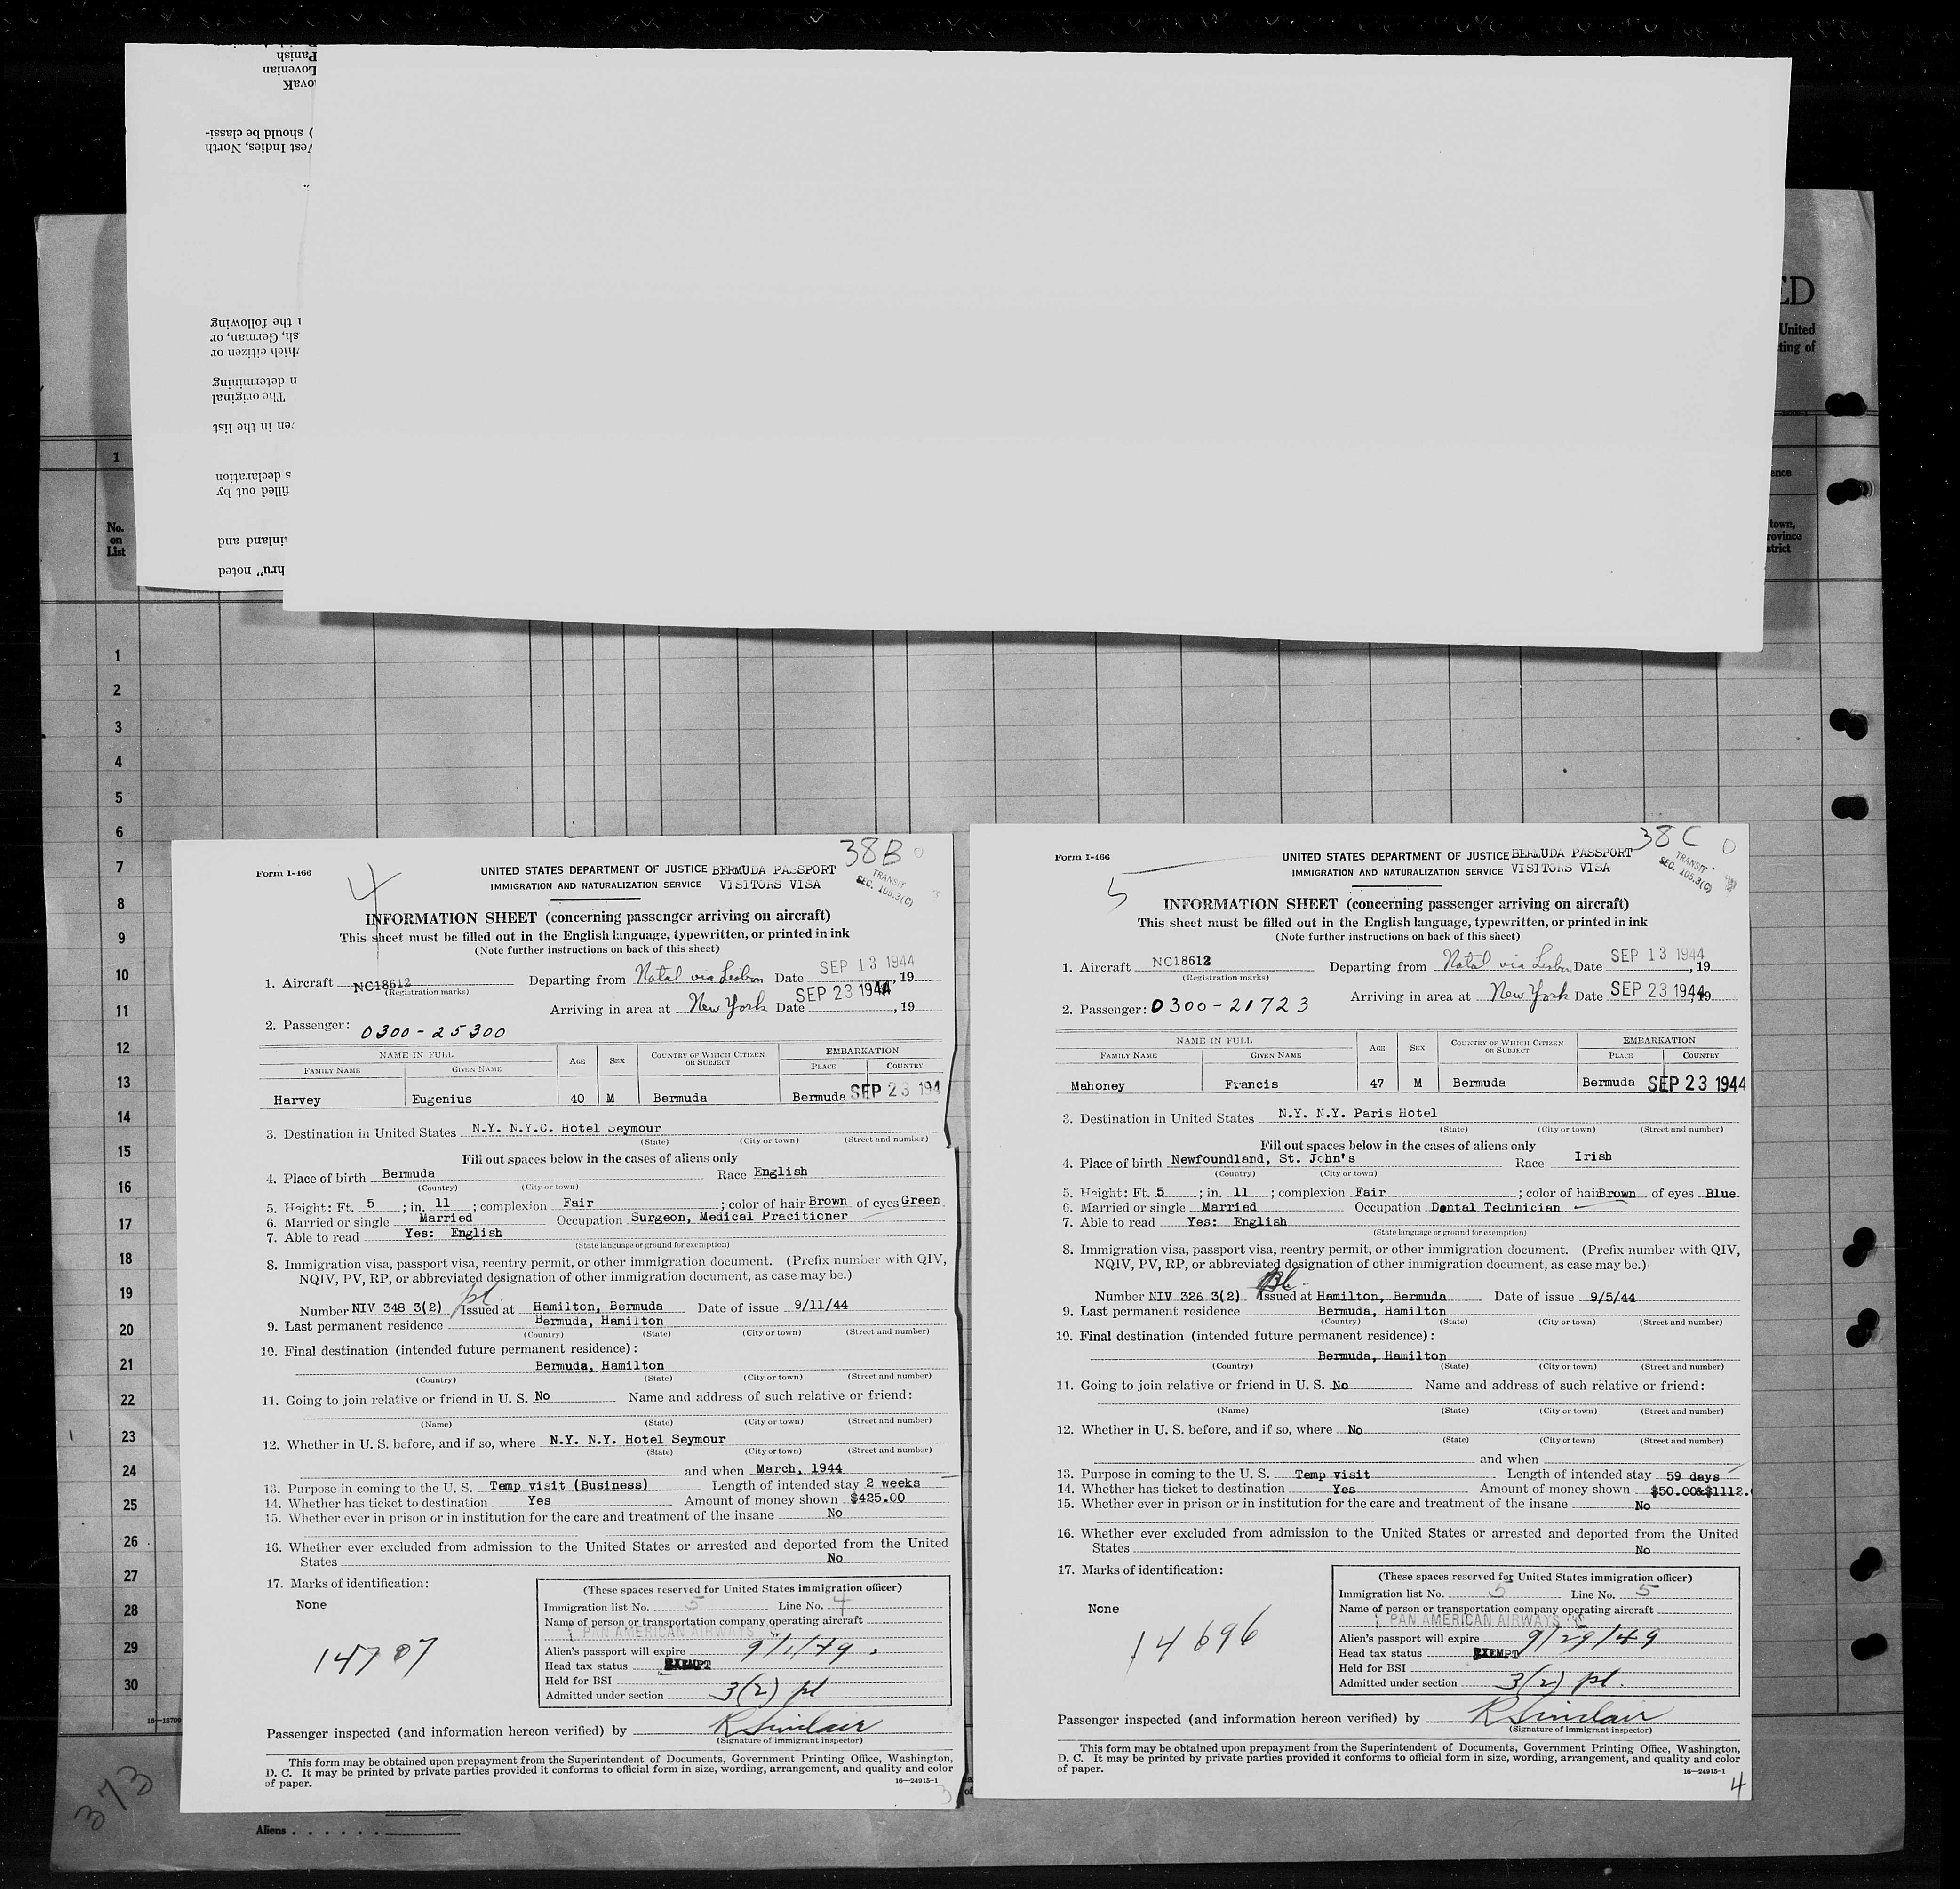 panish
Lovenian
ovak
) should be classi-
Vest Indies, North
n the following
sh, German, or
hich citizen or
n determining
The original
en in the list
s declaration
filled out by
inland and
hru" noted
ED
United
ting of
ence
town,
rovince
strict
1
No.
on
List
1
2
3
4
5
6
7
8
9
10
11
12
13
14
15
16
17
18
19
20
21
22
23
24
25
26
27
28
29
30
373
Aliens . . . . . .
38B
Form I-466
4
UNITED STATES DEPARTMENT OF JUSTICE BERMUDA PASSPORT
IMMIGRATION AND NATURALIZATION SERVICE VISITORS VISA
TRANSIT
SEC. 105.3(C)
INFORMATION SHEET (concerning passenger arriving on aircraft)
This sheet must be filled out in the English language, typewritten, or printed in ink
(Note further instructions on back of this sheet)
1. Aircraft NC18612 Departing from Natal via Lisbon Date SEP 13 1944, 19
(Registration marks)
Arriving in area at New York Date SEP 23 1944, 19
2. Passenger: 0300-25300
NAME IN FULL AGE SEX COUNTRY OF WHICH CITIZEN OR SUBJECT EMBARKATION
FAMILY NAME GIVEN NAME PLACE COUNTRY
Harvey Eugenius 40 M Bermuda Bermuda SEP 23 194
3. Destination in United States N.Y. N.Y.C. Hotel Seymour
(State) (City or town) (Street and number)
Fill out spaces below in the cases of aliens only
4. Place of birth Bermuda Race English
(Country) (City or town)
5. Height: Ft. 5 ; in. 11 ; complexion Fair ; color of hair Brown of eyes Green
6. Married or single Married Occupation Surgeon, Medical Pracitioner
7. Able to read Yes: English
(State language or ground for exemption)
8. Immigration visa, passport visa, reentry permit, or other immigration document. (Prefix number with QIV,
NQIV, PV, RP, or abbreviated designation of other immigration document, as case may be.)
Number NIV 348 3(2) pl. Issued at Hamilton, Bermuda Date of issue 9/11/44
9. Last permanent residence Bermuda, Hamilton
(Country) (State) (City or town) (Street and number)
10. Final destination (intended future permanent residence):
Bermuda, Hamilton
(Country) (State) (City or town) (Street and number)
11. Going to join relative or friend in U. S. No Name and address of such relative or friend:
(Name) (State) (City or town) (Street and number)
12. Whether in U. S. before, and if so, where N.Y. N.Y. Hotel Seymour
(State) (City or town) (Street and number)
and when March, 1944
13. Purpose in coming to the U. S. Temp visit (Business) Length of intended stay 2 weeks
14. Whether has ticket to destination Yes Amount of money shown $425.00
15. Whether ever in prison or in institution for the care and treatment of the insane No
16. Whether ever excluded from admission to the United States or arrested and deported from the United
States No
17. Marks of identification:
None
(These spaces reserved for United States immigration officer)
Immigration list No. 5 Line No. 4
Name of person or transportation company operating aircraft
PAN AMERICAN AIRWAYS
Alien's passport will expire 9/1/49
Head tax status EXEMPT
Held for BSI
Admitted under section 3(2) pl
Passenger inspected (and information hereon verified) by R Sinclair
(Signature of immigrant inspector)
This form may be obtained upon prepayment from the Superintendent of Documents, Government Printing Office, Washington,
D. C. It may be printed by private parties provided it conforms to official form in size, wording, arrangement, and quality and color
of paper.
16—24915-1
3
38C
Form I-466
5
UNITED STATES DEPARTMENT OF JUSTICE BERMUDA PASSPORT
IMMIGRATION AND NATURALIZATION SERVICE VISITORS VISA
TRANSIT
SEC. 105.3(C)
INFORMATION SHEET (concerning passenger arriving on aircraft)
This sheet must be filled out in the English language, typewritten, or printed in ink
(Note further instructions on back of this sheet)
1. Aircraft NC18612 Departing from Natal via Lisbon Date SEP 13 1944, 19
(Registration marks)
Arriving in area at New York Date SEP 23 1944, 19
2. Passenger: 0300-21723
NAME IN FULL AGE SEX COUNTRY OF WHICH CITIZEN OR SUBJECT EMBARKATION
FAMILY NAME GIVEN NAME PLACE COUNTRY
Mahoney Francis 47 M Bermuda Bermuda SEP 23 1944
3. Destination in United States N.Y. N.Y. Paris Hotel
(State) (City or town) (Street and number)
Fill out spaces below in the cases of aliens only
4. Place of birth Newfoundland, St. John's Race Irish
(Country) (City or town)
5. Height: Ft. 5 ; in. 11 ; complexion Fair ; color of hair Brown of eyes Blue
6. Married or single Married Occupation Dental Technician
7. Able to read Yes: English
(State language or ground for exemption)
8. Immigration visa, passport visa, reentry permit, or other immigration document. (Prefix number with QIV,
NQIV, PV, RP, or abbreviated designation of other immigration document, as case may be.)
Number NIV 326 3(2) Issued at Hamilton, Bermuda Date of issue 9/5/44
9. Last permanent residence Bermuda, Hamilton
(Country) (State) (City or town) (Street and number)
10. Final destination (intended future permanent residence):
Bermuda, Hamilton
(Country) (State) (City or town) (Street and number)
11. Going to join relative or friend in U. S. No Name and address of such relative or friend:
(Name) (State) (City or town) (Street and number)
12. Whether in U. S. before, and if so, where No
(State) (City or town) (Street and number)
and when
13. Purpose in coming to the U. S. Temp visit Length of intended stay 59 days
14. Whether has ticket to destination Yes Amount of money shown $50.00&$1112.
15. Whether ever in prison or in institution for the care and treatment of the insane No
16. Whether ever excluded from admission to the United States or arrested and deported from the United
States No
17. Marks of identification:
None
14696
(These spaces reserved for United States immigration officer)
Immigration list No. 5 Line No. 5
Name of person or transportation company operating aircraft
PAN AMERICAN AIRWAYS
Alien's passport will expire 9/29/49
Head tax status EXEMPT
Held for BSI
Admitted under section 3(2) pl.
Passenger inspected (and information hereon verified) by R Sinclair
(Signature of immigrant inspector)
This form may be obtained upon prepayment from the Superintendent of Documents, Government Printing Office, Washington,
D. C. It may be printed by private parties provided it conforms to official form in size, wording, arrangement, and quality and color
of paper.
16—24915-1
4